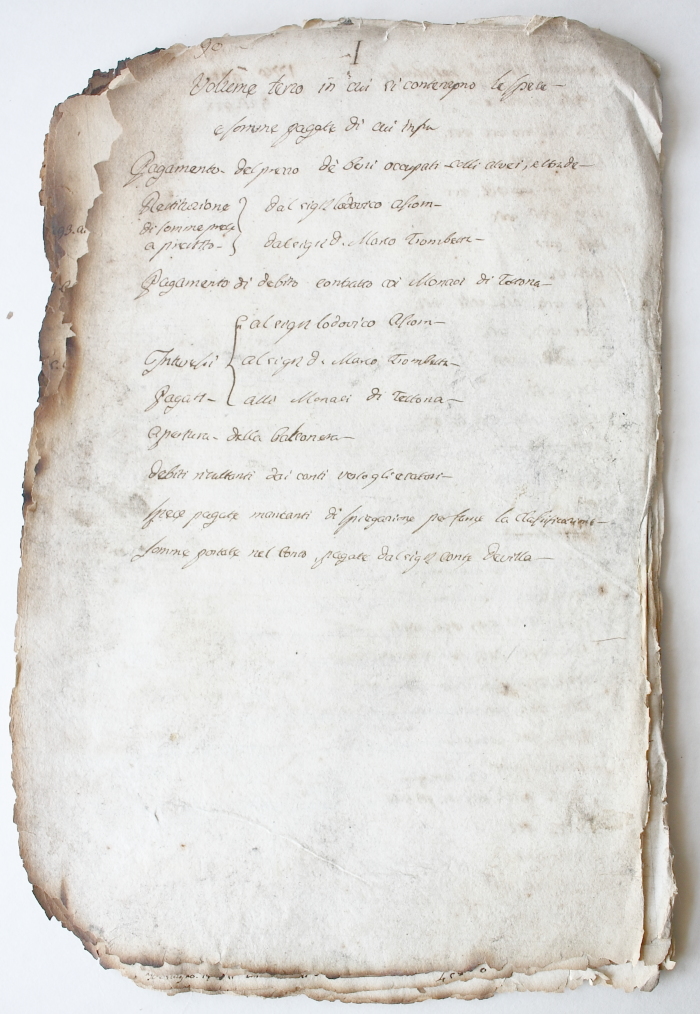 I
Volume terzo in cui si contengono le spese
e somme pagate di cui infra
Pagamento del prezzo de beni occupati colli alvei, e strade
Restituzione } dal sig.r Lodovico
di somme prese
a prestito } dal sig.r d. Marco Trombetta
Pagamento di debito contratto coi Monaci di Tortona
{ al sig.r Lodovico
Interessi { al sig.r d. Marco Trombetta
Pagati { alli Monaci di Tortona
apertura della
debiti risultanti dai conti verso gli esatori
spese pagate mancanti di spiegazione per farne la Classificazione
somme portate nel conto pagate dal sig.r conte